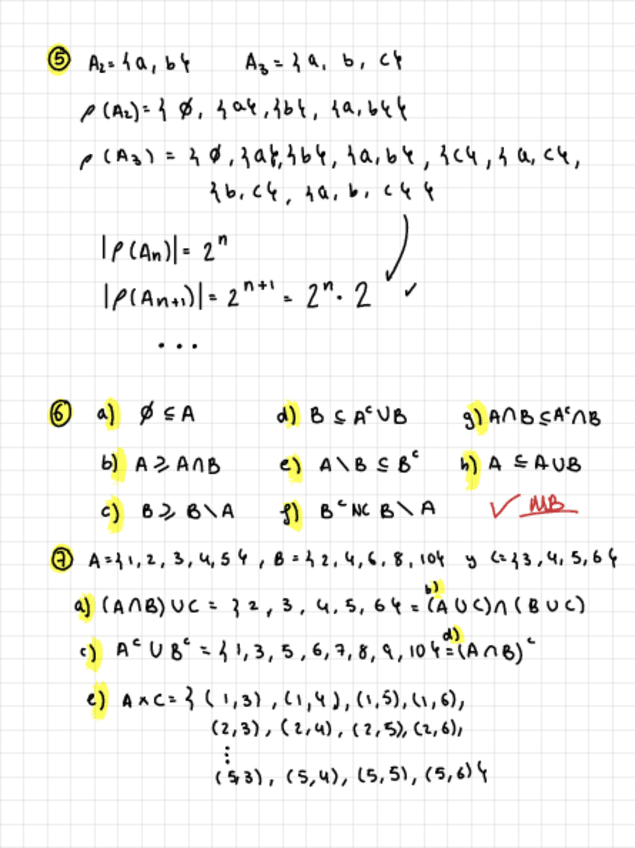 5 A₂ = {a, b} A₃ = {a, b, c}
ρ(A₂) = { ∅, {a}, {b}, {a, b}}
ρ(A₃) = { ∅, {a}, {b}, {a, b}, {c}, {a, c},
{b, c}, {a, b, c}}
|ρ(Aₙ)| = 2ⁿ
|ρ(Aₙ₊₁)| = 2ⁿ⁺¹ = 2ⁿ · 2 ✓
...
6 a) ∅ ⊆ A d) B ⊆ Aᶜ ∪ B g) A ∩ B ⊆ Aᶜ ∩ B
b) A ⩾ A ∩ B e) A \ B ⊆ Bᶜ h) A ⊆ A ∪ B
c) B ⩾ B \ A f) Bᶜ NC B \ A ✓ MB
7 A = {1, 2, 3, 4, 5}, B = {2, 4, 6, 8, 10} y C = {3, 4, 5, 6}
a) (A ∩ B) ∪ C = {2, 3, 4, 5, 6} = b) (A ∪ C) ∩ (B ∪ C)
c) Aᶜ ∪ Bᶜ = {1, 3, 5, 6, 7, 8, 9, 10} = d) (A ∩ B)ᶜ
e) A × C = { (1, 3), (1, 4), (1, 5), (1, 6),
(2, 3), (2, 4), (2, 5), (2, 6),
⋮
(5, 3), (5, 4), (5, 5), (5, 6)}